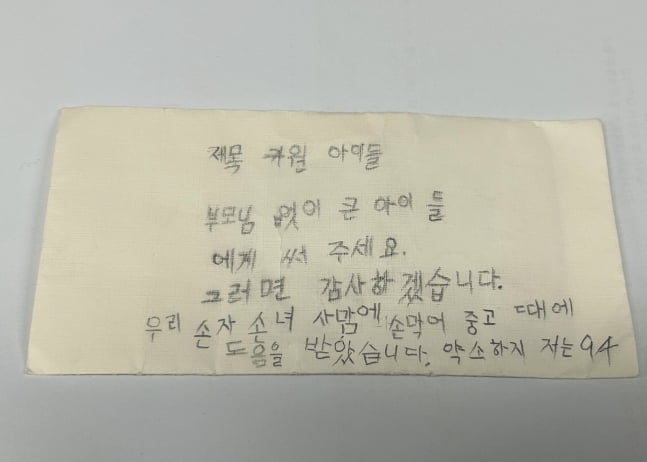 제목 커월 아이들
부모님 없이 큰 아이들
에게 써 주세요.
그러면 감사하겠습니다.
우리 손자 손녀 사맘에 손막어 중고 때에
도음을 받았습니다. 약소하지 저는 94